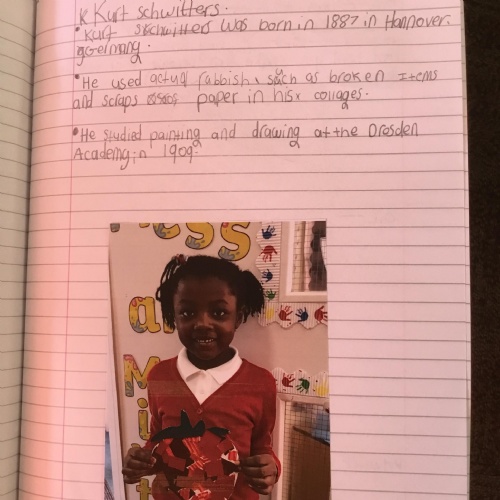 Kurt Schwitters.
• Kurt Schwitters was born in 1887 in Hannover.
Germany.
• He used actual rabbish, such as broken Items
and scraps paper in his collages.
• He studied painting and drawing at the Dresden
Academy in 1909.
ess
a
M
i
t